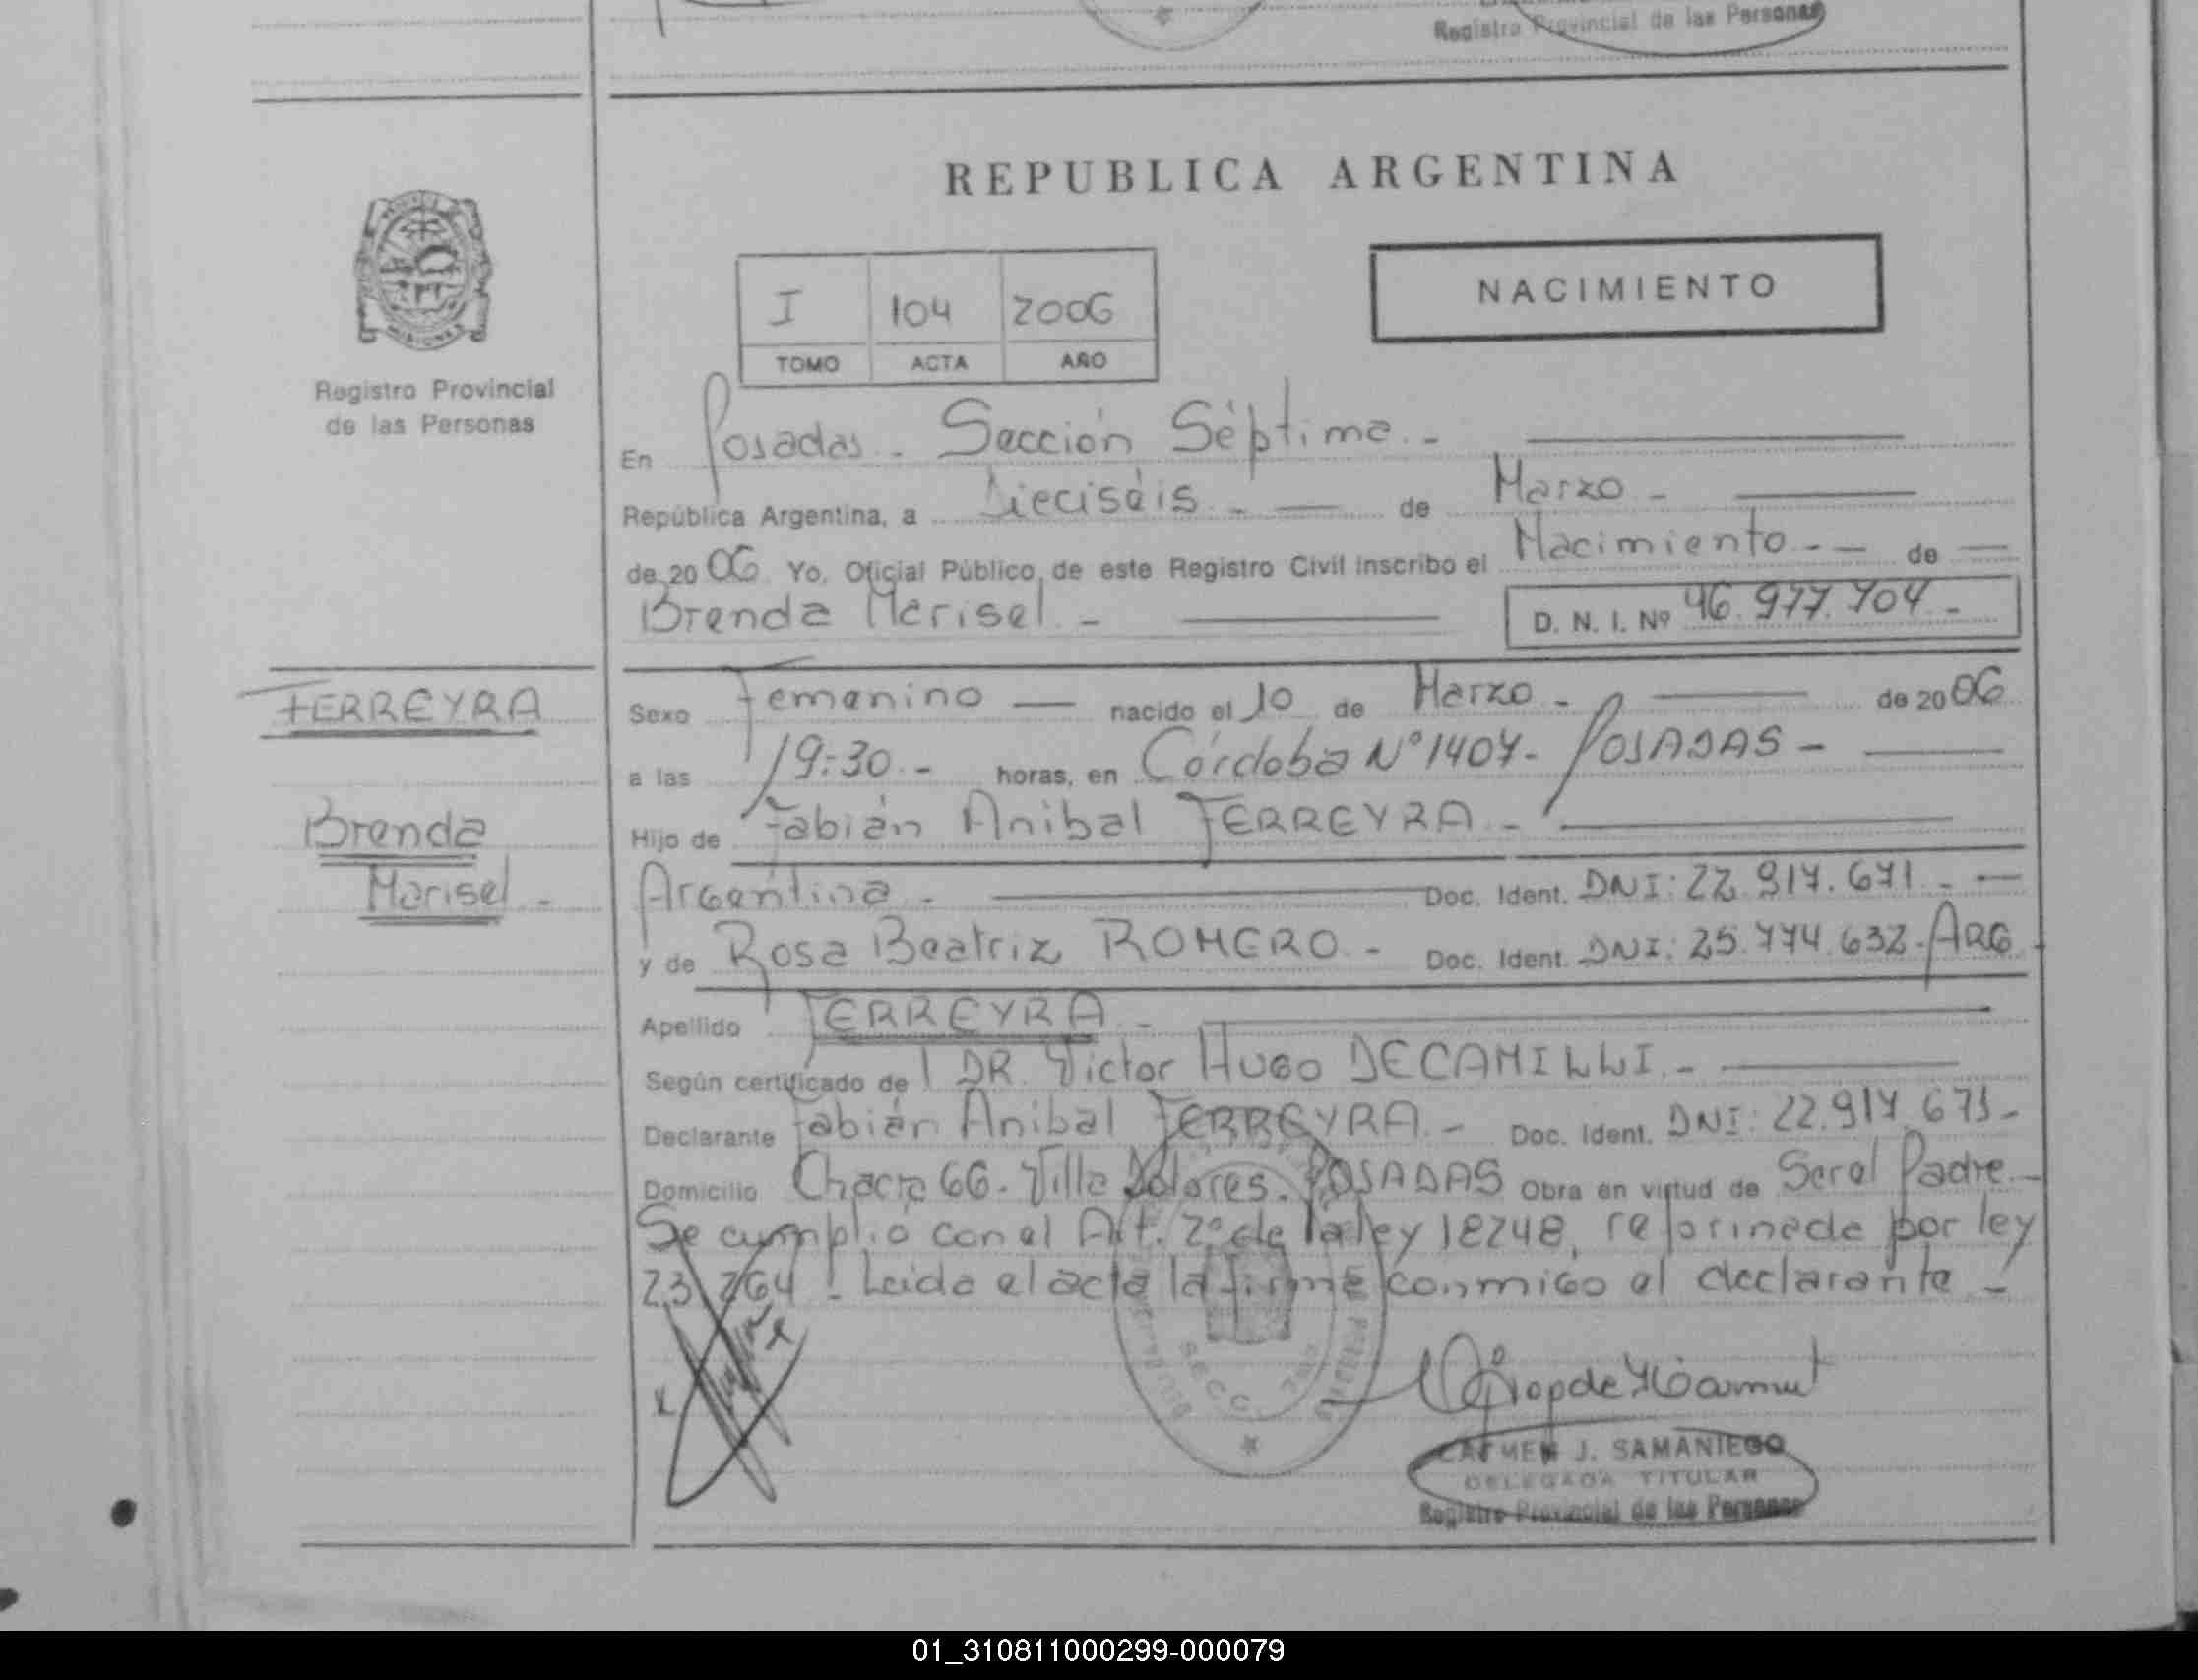 Registro Provincial de las Personas
REPUBLICA ARGENTINA
NACIMIENTO
I 104 2006
TOMO ACTA AÑO
Registro Provincial
de las Personas
En Posadas - Sección Séptima. -
República Argentina, a Dieciséis. - de Marzo -
de 2006 Yo, Oficial Público, de este Registro Civil inscribo el Nacimiento - - de
Brenda Marisel. -
D. N. I. Nº 46.977.704 -
FERREYRA
Brenda
Marisel -
Sexo Femenino nacido el 10 de Marzo - de 2006
a las 19:30. - horas, en Córdoba Nº 1407 - POSADAS -
Hijo de Fabián Anibal FERREYRA. -
Argentina. - Doc. Ident. DNI: 22.917.671. -
y de Rosa Beatriz ROMERO. - Doc. Ident. DNI: 25.774.632-ARG
Apellido FERREYRA -
Según certificado de DR. Victor Hugo DECAMILLI. -
Declarante Fabián Anibal FERREYRA. - Doc. Ident. DNI: 22.917.671-
Domicilio Chacra 66. Villa Dolores. POSADAS Obra en virtud de Ser el Padre. -
Se cumplió con el Art. 2º de la ley 18248, reformada por ley
23.264 - Leida el acta la firma conmigo el declarante -
SECC.
CARMEN J. SAMANIEGO
DELEGADA TITULAR
Registro Provincial de las Personas
01_310811000299-000079